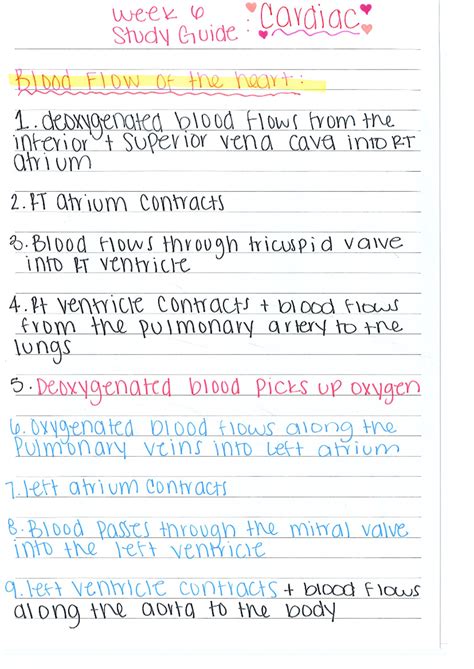 Week 6
Study Guide: Cardiac
Blood Flow of the heart:
1. deoxygenated blood flows from the
inferior + superior vena cava into RT
atrium
2. RT atrium contracts
3. Blood flows through tricuspid valve
into RT ventricle
4. Rt ventricle contracts + blood flows
from the pulmonary artery to the
lungs
5. Deoxygenated blood picks up oxygen
6. Oxygenated blood flows along the
Pulmonary veins into left atrium
7. left atrium contracts
8. Blood passes through the mitral valve
into the left ventricle
9. left ventricle contracts + blood flows
along the aorta to the body